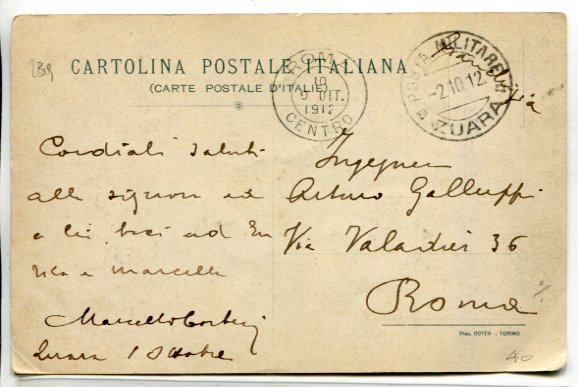 239
CARTOLINA POSTALE ITALIANA
(CARTE POSTALE D'ITALIE)
ROMA
19
9 OTT.
1912
CENTRO
POSTA MILITARE
-2.10.12
ZUARA
Cordiali saluti
alla signora ed
a lei baci ad En
rica e Marcella
Marcello
Zuara 1 Ottobre
Ingegnere
Arturo Galluppi
Via Valadier 36
Roma
Stab. DOYEN - TORINO
40